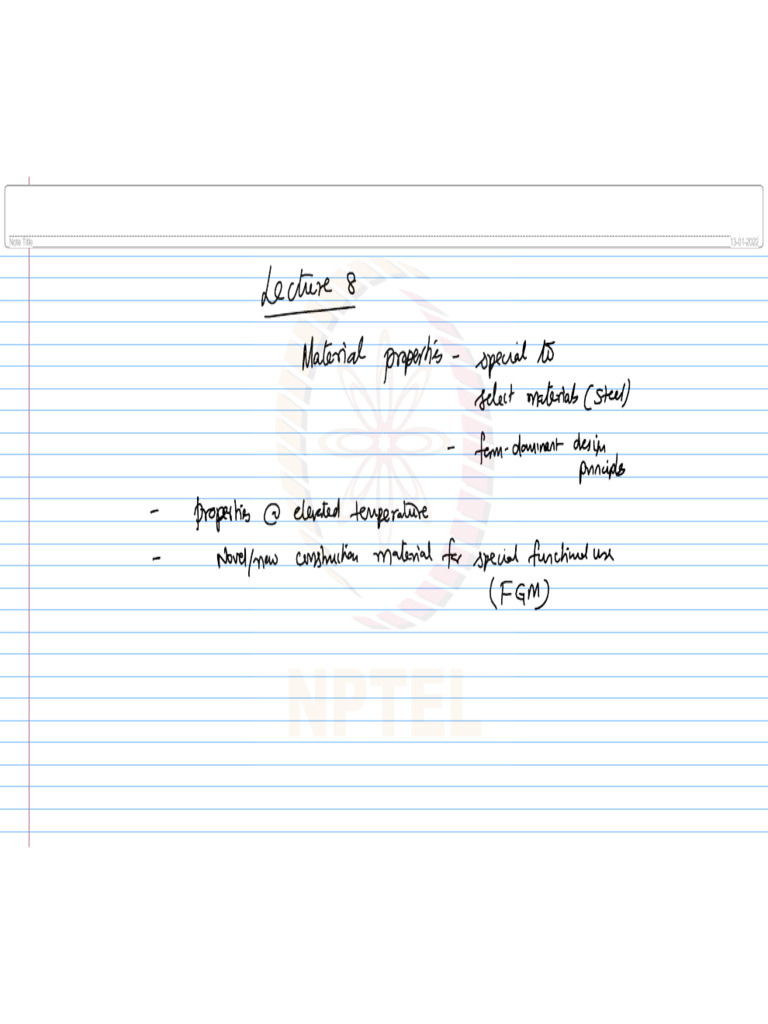 Note Title
13-01-2022
Lecture 8
Material properties - special to
select materials (steel)
- form-dominant design
principles
- properties @ elevated temperature
- Novel/new construction material for special functional use
(FGM)
NPTEL